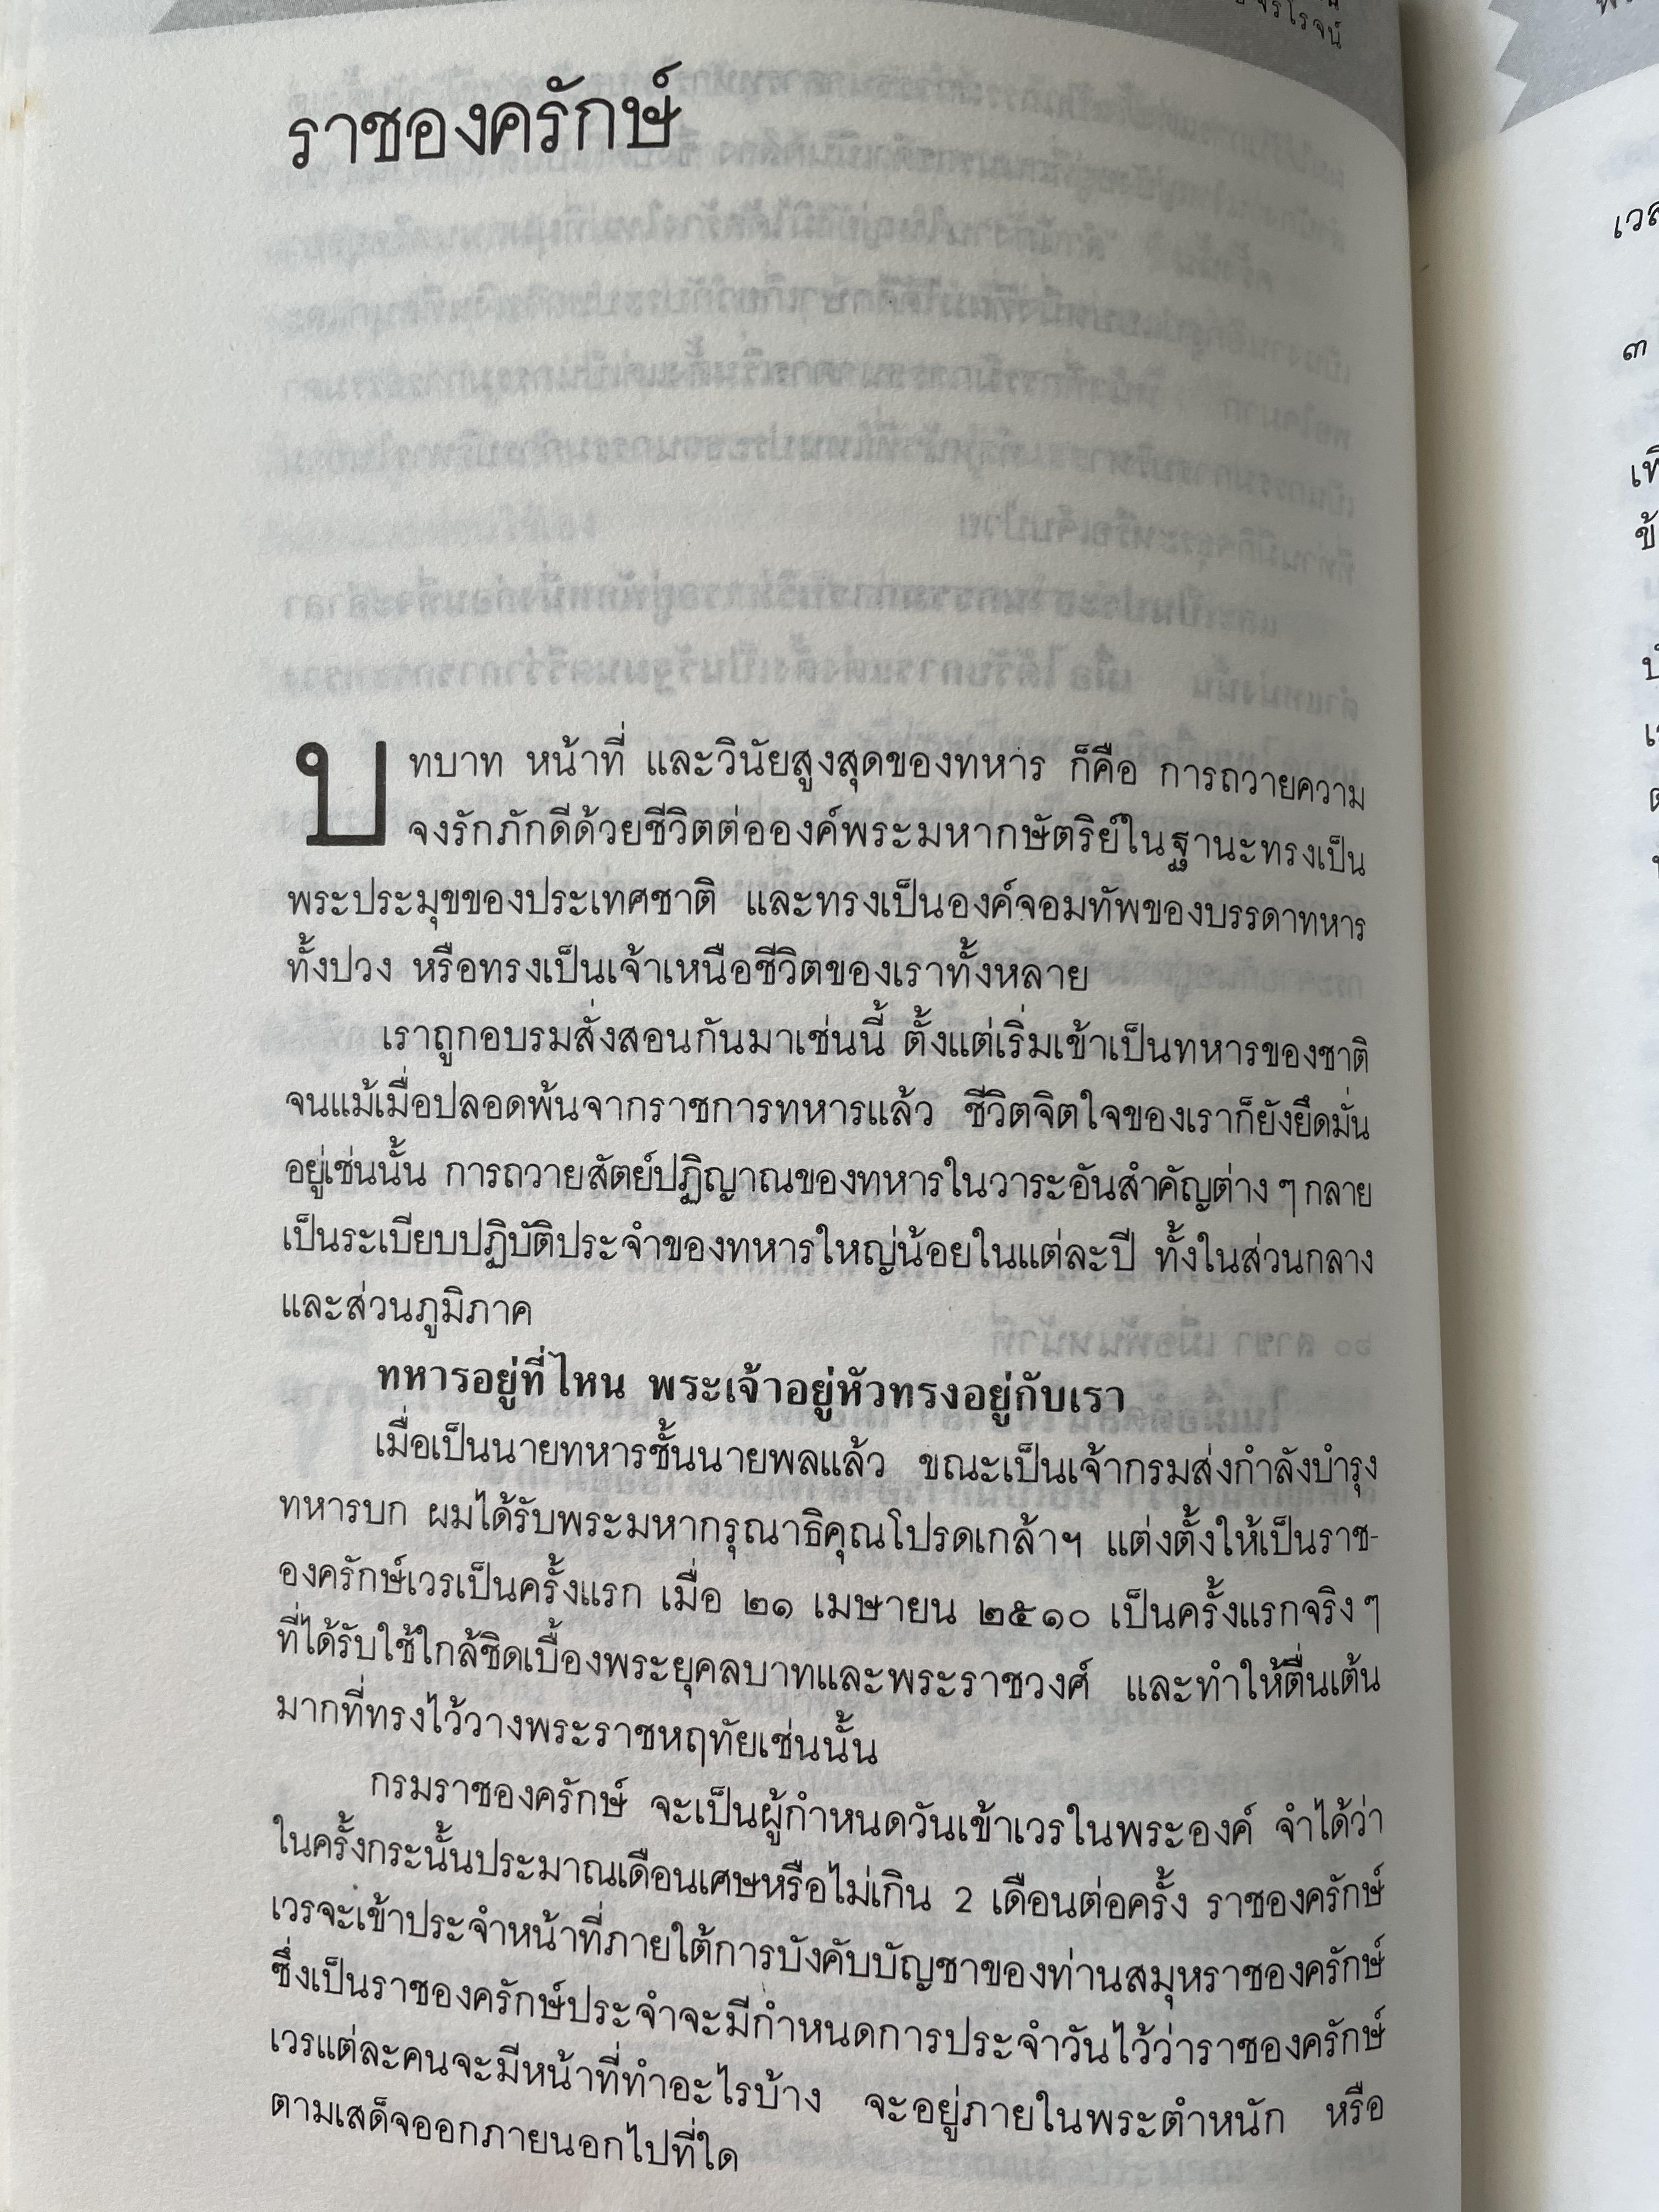 จรโรจน์
ราชองครักษ์
บทบาท หน้าที่ และวินัยสูงสุดของทหาร ก็คือ การถวายความ
จงรักภักดีด้วยชีวิตต่อองค์พระมหากษัตริย์ในฐานะทรงเป็น
พระประมุขของประเทศชาติ และทรงเป็นองค์จอมทัพของบรรดาทหาร
ทั้งปวง หรือทรงเป็นเจ้าเหนือชีวิตของเราทั้งหลาย
เราถูกอบรมสั่งสอนกันมาเช่นนี้ ตั้งแต่เริ่มเข้าเป็นทหารของชาติ
จนแม้เมื่อปลอดพ้นจากราชการทหารแล้ว ชีวิตจิตใจของเราก็ยังยึดมั่น
อยู่เช่นนั้น การถวายสัตย์ปฏิญาณของทหารในวาระอันสำคัญต่าง ๆ กลาย
เป็นระเบียบปฏิบัติประจำของทหารใหญ่น้อยในแต่ละปี ทั้งในส่วนกลาง
และส่วนภูมิภาค
ทหารอยู่ที่ไหน พระเจ้าอยู่หัวทรงอยู่กับเรา
เมื่อเป็นนายทหารชั้นนายพลแล้ว ขณะเป็นเจ้ากรมส่งกำลังบำรุง
ทหารบก ผมได้รับพระมหากรุณาธิคุณโปรดเกล้าฯ แต่งตั้งให้เป็นราช-
องครักษ์เวรเป็นครั้งแรก เมื่อ ๒๑ เมษายน ๒๕๑๐ เป็นครั้งแรกจริง ๆ
ที่ได้รับใช้ใกล้ชิดเบื้องพระยุคลบาทและพระราชวงศ์ และทำให้ตื่นเต้น
มากที่ทรงไว้วางพระราชหฤทัยเช่นนั้น
กรมราชองครักษ์ จะเป็นผู้กำหนดวันเข้าเวรในพระองค์ จำได้ว่า
ในครั้งกระนั้นประมาณเดือนเศษหรือไม่เกิน 2 เดือนต่อครั้ง ราชองครักษ์
เวรจะเข้าประจำหน้าที่ภายใต้การบังคับบัญชาของท่านสมุหราชองครักษ์
ซึ่งเป็นราชองครักษ์ประจำจะมีกำหนดการประจำวันไว้ว่าราชองครักษ์
เวรแต่ละคนจะมีหน้าที่ทำอะไรบ้าง จะอยู่ภายในพระตำหนัก หรือ
ตามเสด็จออกภายนอกไปที่ใด
๓